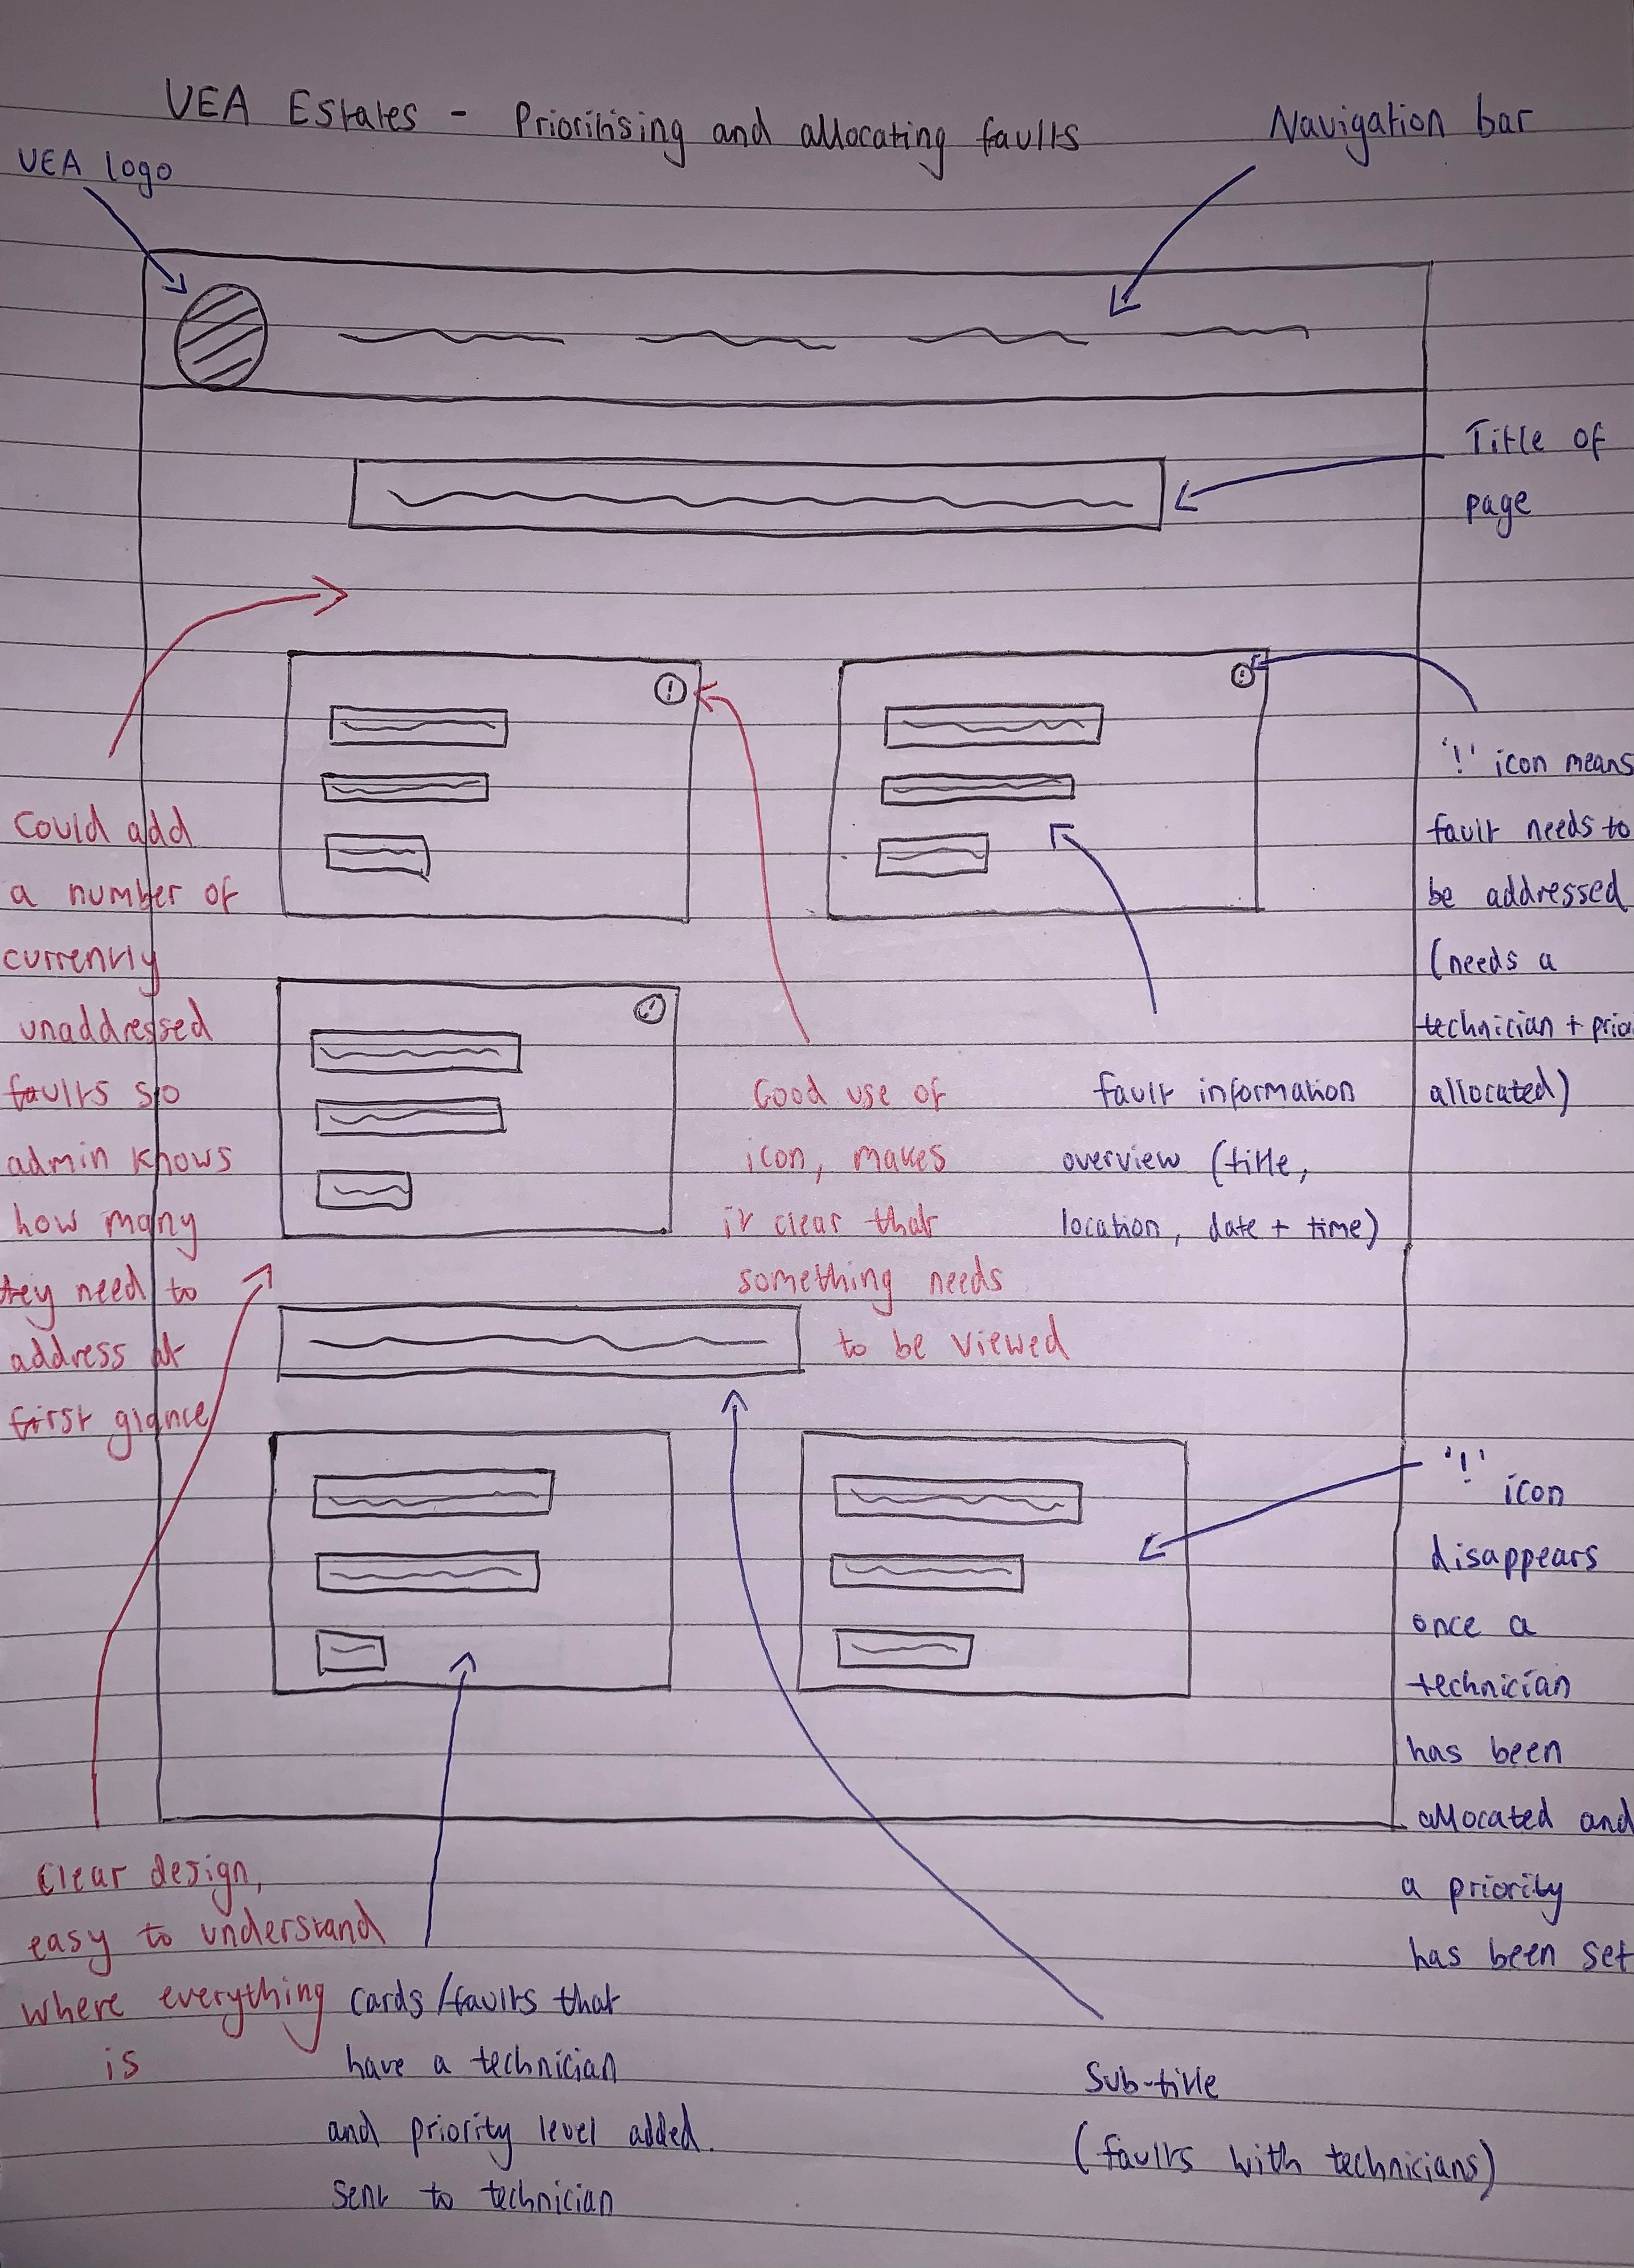 UEA Estates - Prioritising and allocating faults
Navigation bar
UEA logo
Title of
page
'!' icon means
fault needs to
be addressed
(needs a
technician + prio
allocated)
Could add
a number of
currently
unaddressed
faults so
admin knows
how many
they need to
address at
first glance
Good use of
icon, makes
it clear that
something needs
to be viewed
fault information
overview (title,
location, date + time)
'!'
icon
disappears
once a
technician
has been
allocated and
a priority
has been set
Clear design,
easy to understand
where everything
is
cards/faults that
have a technician
and priority level added.
sent to technician
Sub-title
(faults with technicians)